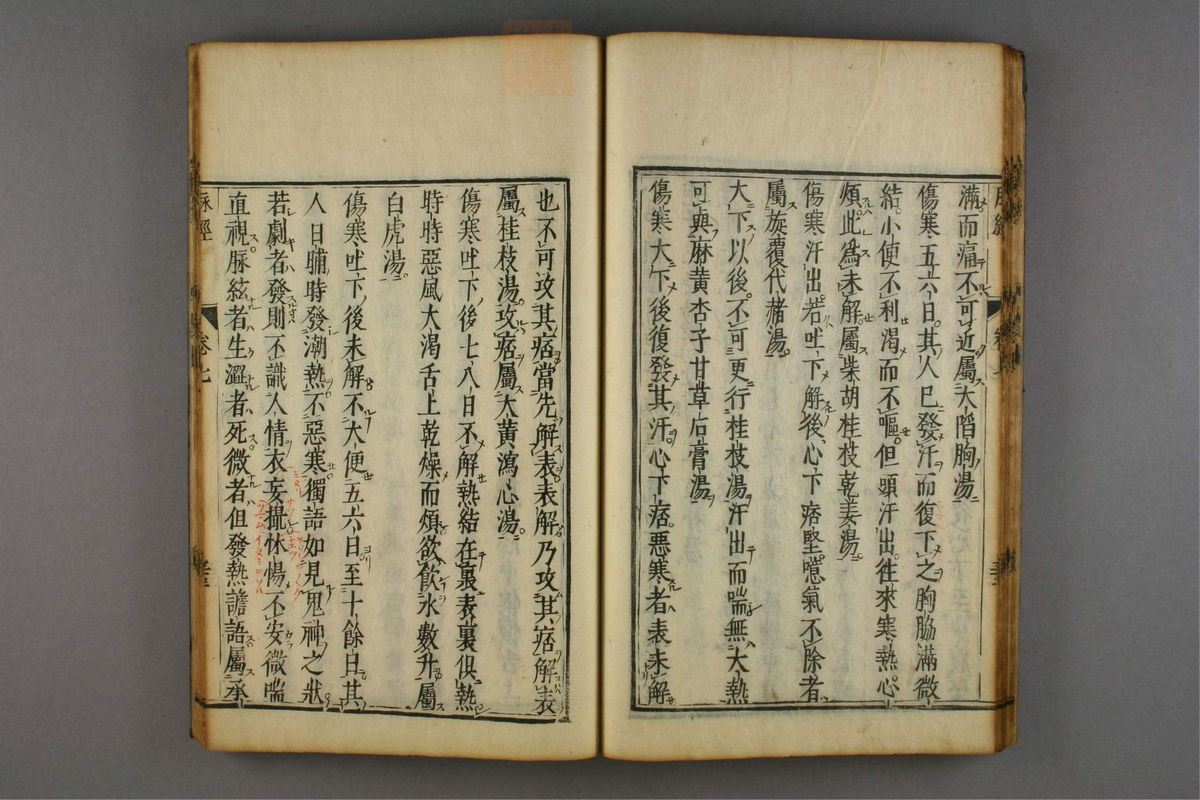 滿而痛不可近屬大陷胸湯
傷寒五六日其人已發汗而復下之胸脇滿微
結小便不利渴而不嘔但頭汗出往來寒熱心
煩此爲未解屬柴胡桂枝乾姜湯
傷寒汗出若吐下解後心下痞堅噫氣不除者
屬旋覆代赭湯
大下以後不可更行桂枝湯汗出而喘無大熱
可與麻黃杏子甘草石膏湯
傷寒大下後復發其汗心下痞惡寒者表未解
也不可攻其痞當先解表表解乃攻其痞解表
屬桂枝湯攻痞屬大黃瀉心湯
傷寒吐下後七八日不解熱結在裏表裏俱熱
時時惡風大渴舌上乾燥而煩欲飲水數升屬
白虎湯
傷寒吐下後未解不大便五六日至十餘日其
人日晡時發潮熱不惡寒獨語如見鬼神之狀
若劇者發則不識人情衣妄撮怵惕不安微喘
直視脉絃者生濇者死微者但發熱譫語屬承
脉經
卷七